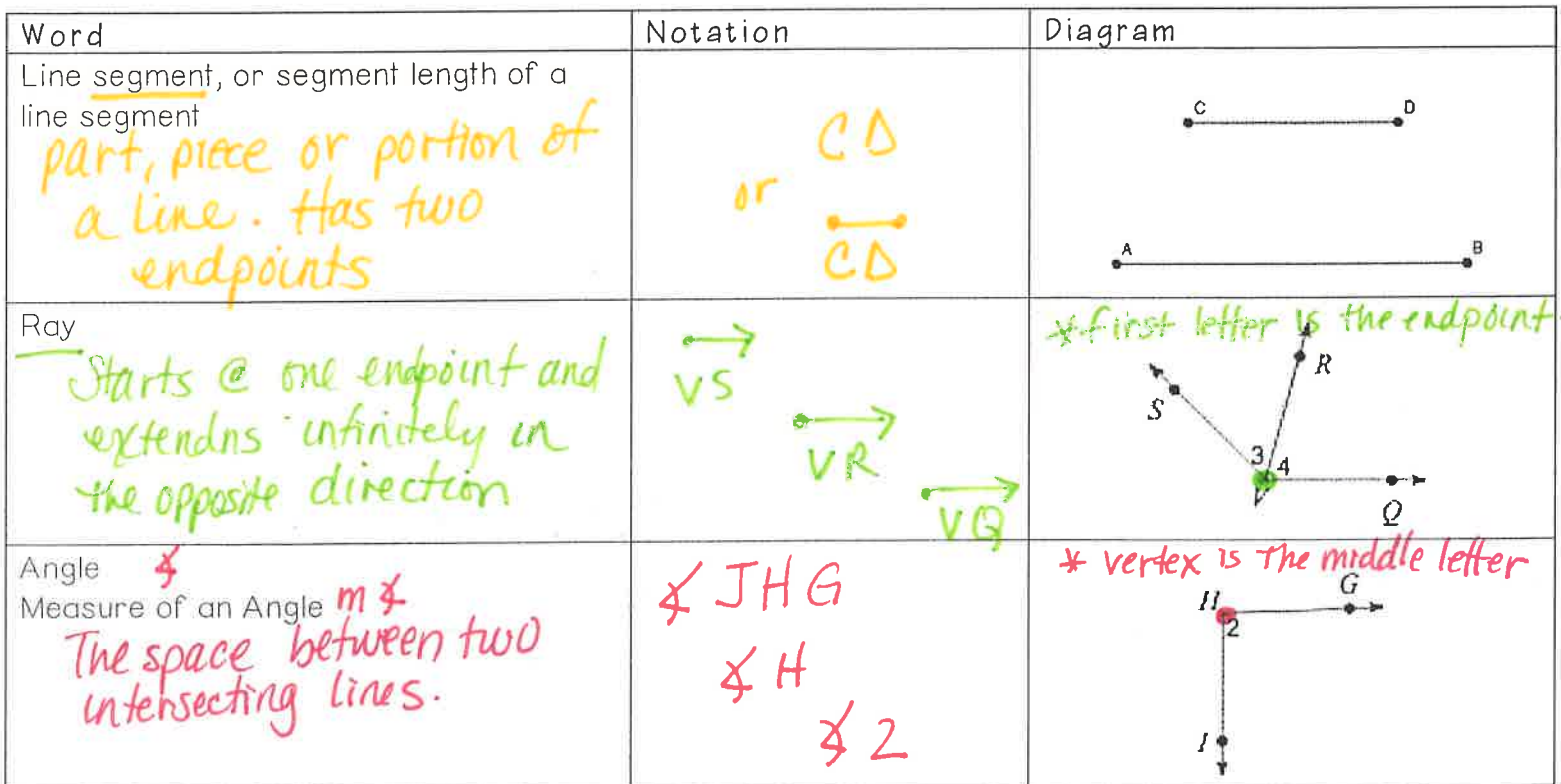 Word
Notation
Diagram
Line segment, or segment length of a
line segment
part, piece or portion of
a line. Has two
endpoints
CD
or
CD
C D
A B
Ray
Starts @ one endpoint and
extendns infinitely in
the opposite direction
VS
VR
VQ
*first letter is the endpoint
R
S
3 4
Q
Angle ∡
Measure of an Angle m∡
The space between two
intersecting lines.
∡ JHG
∡ H
∡ 2
* vertex is The middle letter
H G
2